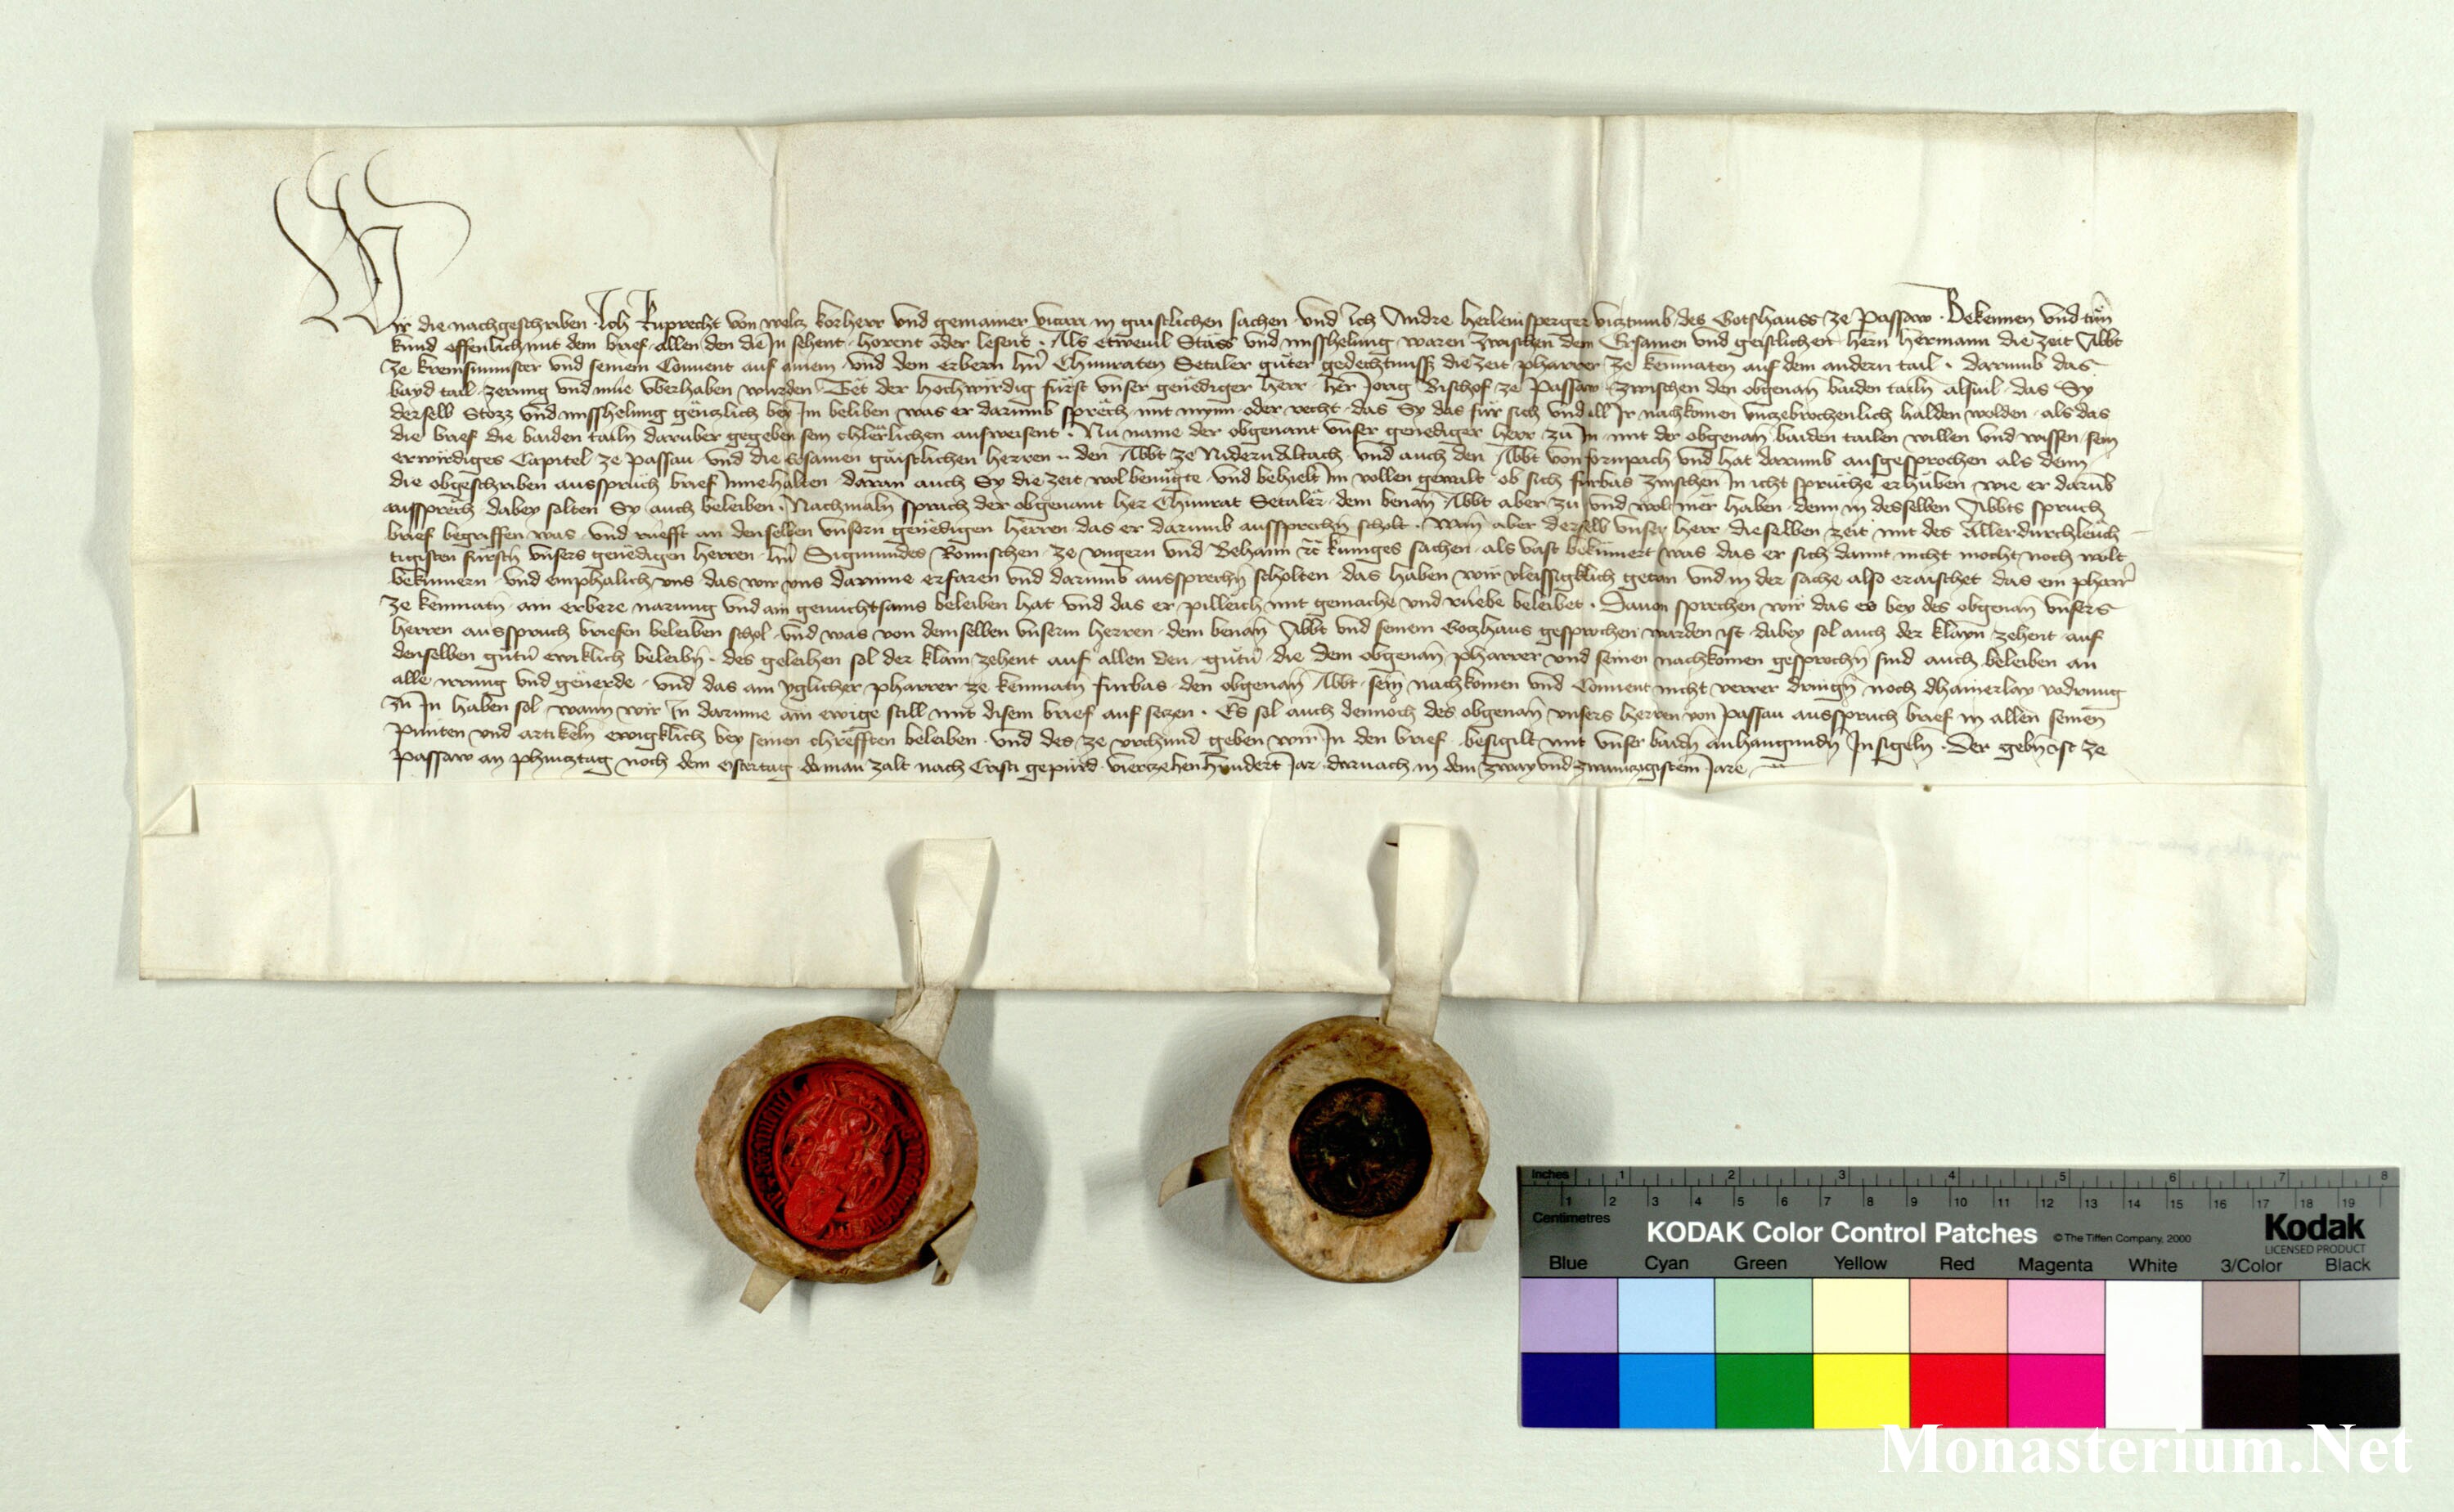 Wir die nachgeschriben · Ich Ruprecht von welcz korherr vnd gemainer vicari in gaistlichen sachen vnd Ich Andre Herleinsperger vicztumb des Gotshauss ze Passaw · Bekennen vnd tun
kund offenlich mit dem brief allen den die In sehent horent oder lesent · Als etweuil Stozz vnd misshelung waren zwischen dem Ersamen vnd geistlichen hern Hermann die zeit Abbt
ze kremsmunster vnd seinem Conuent auf ainem vnd dem erbern hn Chunraten Setaler guter gedechtnuss die zeit pharrer ze kemnaten auf dem andern tail · darumb das
bayd tail zerung vnd mue vberhaben wurden Tet der hochwirdig fürst vnser genediger herr her Jorig Bischof ze Passaw zwischen den obgenan baiden tailn alsuil das Sy
derselb Stozz vnd misshelung genczlich bey im beliben was er darumb sprech mit mynn oder recht das Sy das für sich vnd all Ir nachkomen vnczebrochenlich halden wolden als das
die brief die baiden tailn daruber gegeben sein chlerlichen ausweisent · Nu name der obgenant vnser genediger herr zu Im mit der obgenan baiden tailen willen vnd wissen sein
erwirdiges Capitel ze Passau vnd die Ersamen gaistlichen herren den Abbt ze Nidernaltach vnd auch den Abbt von fornpach vnd hat darumb ausgesprochen als denn
die obgeschriben ausspruch brief Innehalten daran auch Sy die zeit wol benugte vnd behielt Im vollen gewalt ob sich furbas zwischen In icht spruche erhuben wie er darub
aussprech dabey solten Sy auch beleiben · Nachmaln sprach der obgenant her Chunrat Setaler dem benan Abbt aber zu vnd wolt mer haben denn in desselben Abbts spruch
brief begriffen was vnd rüefft an denselben vnsern genedigen herren das er darumb aussprechn scholt · wan aber derselb vnser herr dieselben zeit mit des Allerdurchleuch
tigisten fürstn vnsers genedigen herren hn Sigmundes Romischen ze vngern vnd Behaim etc kuniges sachen als vast bekumert was das er sich damit nicht mocht noch wolt
bekumern vnd emphalich vns das wir vns darinne erfaren vnd darumb aussprechn scholten das haben wir vleissigklich getan vnd in der sache also eraischet das ein pharr
ze kemnatn ain erbere narung vnd ain genuchtsams beleiben hat vnd das er pilleich mit gemache vnd ruebe beleibet · Dauon sprechen wir das es bey des obgenan vnsers
herren ausspruch briefen beleiben schol vnd was von demselben vnserm herren dem benan Abbt vnd seinem Gotzhaus gesprochen warden ist dabey sol auch der klayn zehent auf
denselben gutn ewiklich beleibn · des geleihen sol der klain zehent auf allen den gutn die dem obgenan pharrer vnd seinen nachkomen gesprochn sind auch beleiben an
alle irrung vnd geuerde vnd das ain yglicher pharrer ze kemnatn furbas den obgenan Abbt sein nachkomen vnd Conuent nicht verrer dringn noch dhainerlay vodrung
zu In haben sol wann wir In darinne ain ewige still mit disem brief auf seczen · Es sol auch dennoch des obgenan vnsers herren von Passau ausspruch brief in allen seinen
punten vnd artikeln ewigklich bey seinen chrefften beleiben vnd des ze vrchund geben wir In den brief besigilt mit vnser baidn anhangundn Insigeln · Der gebn ist ze
Passaw an phincztag noch dem ostertag do man zalt nach Cristi gepurd vierczehenhundert Jar darnach in dem zway vnd zwainczigistem Jare
Inches 1 2 3 4 5 6 7 8
1 2 3 4 5 6 7 8 9 10 11 12 13 14 15 16 17 18 19
Centimetres
KODAK Color Control Patches © The Tiffen Company, 2000 Kodak
LICENSED PRODUCT
Blue Cyan Green Yellow Red Magenta White 3/Color Black
Monasterium.Net